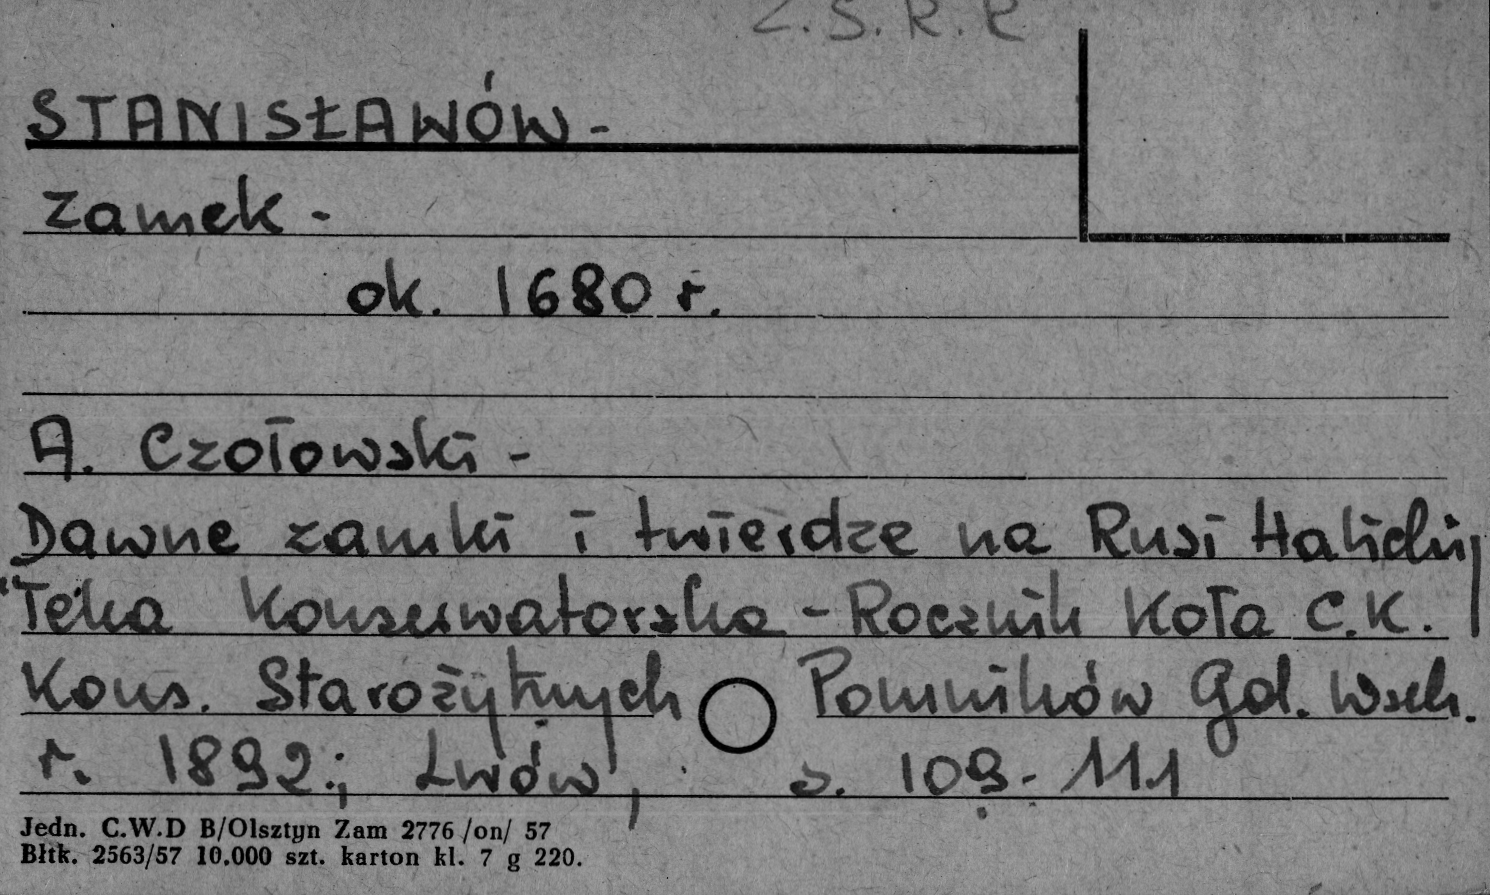 Z.S.R.R
STANISŁAWÓW -
zamek -
ok. 1680 r.
A. Czołowski -
Dawne zamki i twierdze na Rusi Halickiej
"Teka Konserwatorska - Rocznik Koła C.K.
Kons. Starożytnych Pomników Gal. Wsch.
r. 1892.; Lwów, s. 109-111
Jedn. C.W.D B/Olsztyn Zam 2776 /on/ 57
Błtk. 2563/57 10.000 szt. karton kl. 7 g 220.